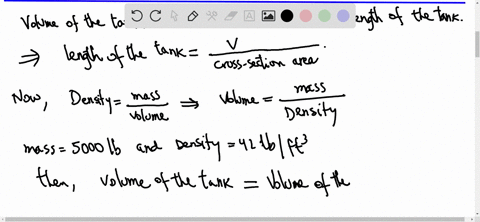 Volume of the ta length of the tank.
⇒ length of the tank = V / cross-section area.
Now, Density = mass / volume ⇒ Volume = mass / Density
mass = 5000 lb and Density = 42 lb | ft³
then, volume of the tank = Volume of the